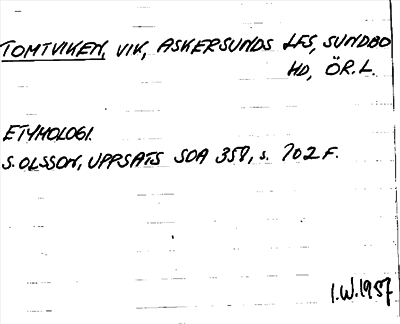 TOMTVIKEN, VIK, ASKERSUNDS LFS, SUNDBO
HD, ÖR.L.
ETYMOLOGI.
S. OLSSON, UPPSATS SOA 358, s. 702 F.
I.W. 1957